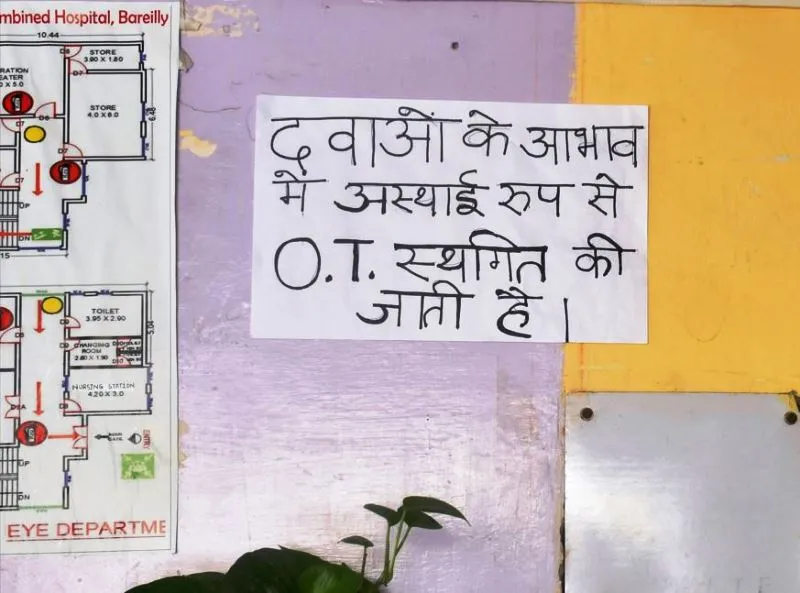 mbined Hospital, Bareilly
10.44
STORE
3.90 X 1.80
D7
STORE
4.0 X 6.0
6.48
D6
D7
D7
D7
UP
DN
15
TOILET
3.95 X 2.90
5.04
CHANGING
ROOM
2.60 X 1.90
NURSING STATION
4.20 X 3.0
ENTRY
UP
DN
EYE DEPARTME
दवाओं के आभाव
में अस्थाई रुप से
O.T. स्थगित की
जाती है।